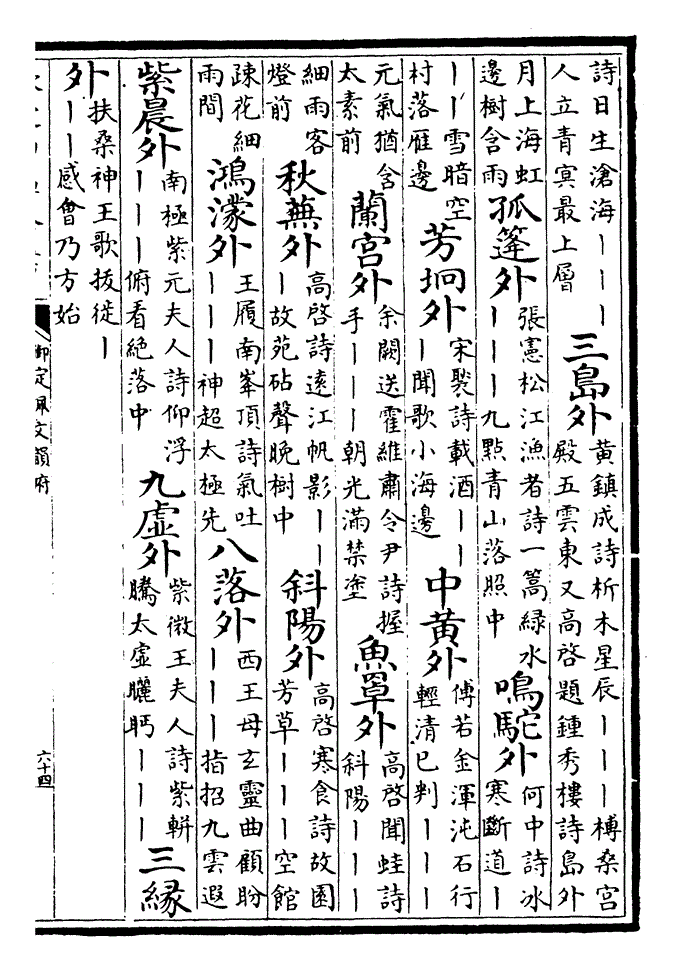 詩日生滄海｜｜｜人立青冥最上層三島外黄鎮成詩析木星辰｜｜｜榑桑宫殿五雲東又高啓題鍾秀樓詩島外
月上海虹邊樹含雨孤篷外張憲松江漁者詩一篙緑水｜｜｜九點青山落照中鳴駝外何中詩冰寒斷道｜
｜｜雪暗空村落雁邊芳坰外宋褧詩載酒｜｜｜聞歌小海邊中黄外傅若金渾沌石行輕清已判｜｜｜
元氣猶含太素前蘭宫外余闕送霍維肅令尹詩握手｜｜｜朝光滿禁塗魚罩外高啓聞蛙詩斜陽｜｜｜
細雨客燈前秋蕪外高啓詩遠江帆影｜｜｜故苑砧聲晚樹中斜陽外高啓寒食詩故園芳草｜｜｜空館
疎花細雨間鴻濛外王履南峯頂詩氣吐｜｜｜神超太極先八落外西王母玄靈曲顧盼｜｜｜指招九雲遐
紫晨外南極紫元夫人詩仰浮｜｜｜俯看絶落中九虚外紫微王夫人詩紫軿騰太虚曬眄｜｜｜三縁
外扶桑神王歌抜徙｜｜｜感會乃方始
御定佩文韻府
六十四